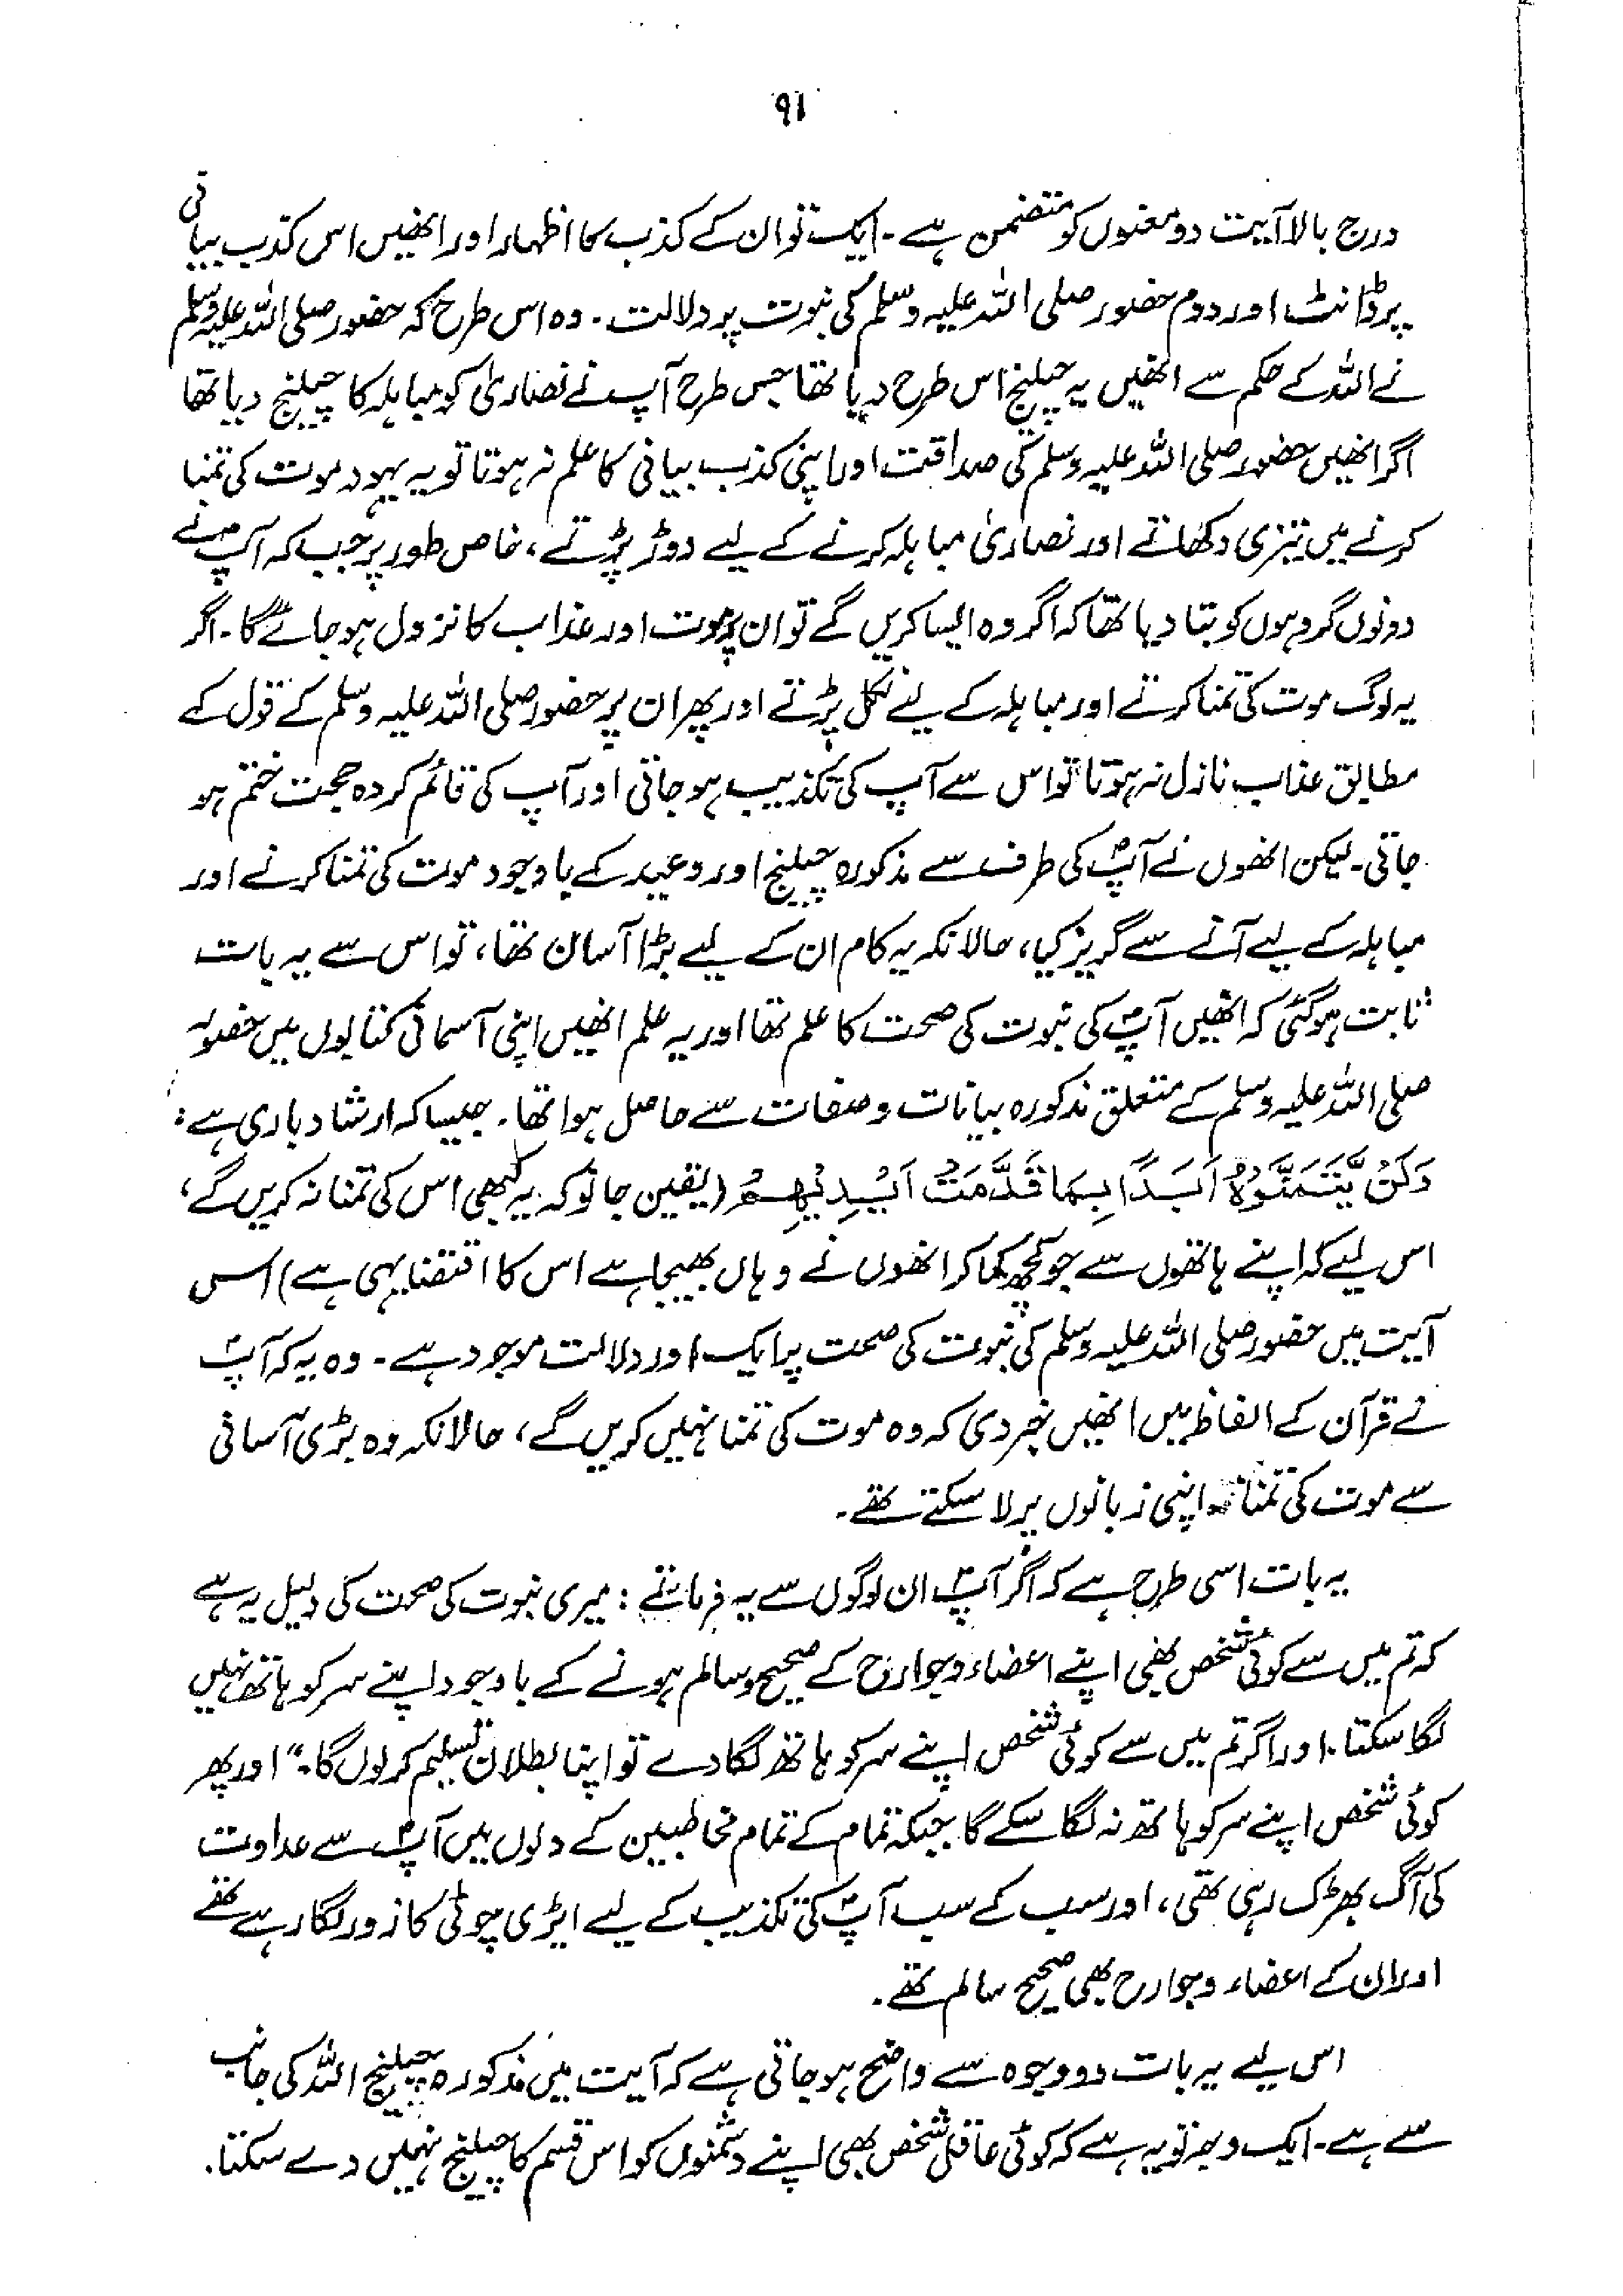 ۹۱
درج بالا آیت دو معنوں کو متضمن ہے۔ ایک تو ان کے کذب کا اظہار اور انھیں اس کذب بیانی
پر ڈانٹ اور دوم حضور صلی اللہ علیہ وسلم کی نبوت پر دلالت۔ وہ اس طرح کہ حضور صلی اللہ علیہ وسلم
نے اللہ کے حکم سے انھیں یہ چیلنج اس طرح دیا تھا جس طرح آپ نے نصاریٰ کو مباہلہ کا چیلنج دیا تھا
اگر انھیں حضور صلی اللہ علیہ وسلم کی صداقت اور اپنی کذب بیانی کا علم نہ ہوتا تو یہ یہود موت کی تمنا
کرنے میں تیزی دکھاتے اور نصاریٰ مباہلہ کرنے کے لیے دوڑ پڑتے، خاص طور پر جب کہ آپؐ نے
دونوں گروہوں کو بتا دیا تھا کہ اگر وہ ایسا کریں گے تو ان پر موت اور عذاب کا نزول ہو جائے گا۔ اگر
یہ لوگ موت کی تمنا کرتے اور مباہلہ کے لیے نکل پڑتے اور پھر ان پر حضور صلی اللہ علیہ وسلم کے قول کے
مطابق عذاب نازل نہ ہوتا تو اس سے آپ کی تکذیب ہو جاتی اور آپ کی قائم کردہ حجت ختم ہو
جاتی۔ لیکن انھوں نے آپؐ کی طرف سے مذکورہ چیلنج اور وعید کے باوجود موت کی تمنا کرنے اور
مباہلہ کے لیے آنے سے گریز کیا، حالانکہ یہ کام ان کے لیے بڑا آسان تھا، تو اس سے یہ بات
ثابت ہو گئی کہ انھیں آپؐ کی نبوت کی صحت کا علم تھا اور یہ علم انھیں اپنی آسمانی کتابوں میں حضور
صلی اللہ علیہ وسلم کے متعلق مذکورہ بیانات و صفات سے حاصل ہوا تھا۔ جیسا کہ ارشاد باری ہے:
وَلَنْ يَّتَمَنَّوْهُ اَبَدًا بِمَا قَدَّمَتْ اَيْدِيْهِمْ (یقین جانو کہ یہ کبھی اس کی تمنا نہ کریں گے،
اس لیے کہ اپنے ہاتھوں سے جو کچھ کما کر انھوں نے وہاں بھیجا ہے اس کا اقتضا یہی ہے) اس
آیت میں حضور صلی اللہ علیہ وسلم کی نبوت کی صحت پر ایک اور دلالت موجود ہے۔ وہ یہ کہ آپؐ
نے قرآن کے الفاظ میں انھیں خبر دی کہ وہ موت کی تمنا نہیں کریں گے، حالانکہ وہ بڑی آسانی
سے موت کی تمنا اپنی زبانوں پر لا سکتے تھے۔
یہ بات اسی طرح ہے کہ اگر آپؐ ان لوگوں سے یہ فرماتے: میری نبوت کی صحت کی دلیل یہ ہے
کہ تم میں سے کوئی شخص بھی اپنے اعضاء و جوارح کے صحیح و سالم ہونے کے باوجود اپنے سر کو ہاتھ نہیں
لگا سکتا۔ اور اگر تم میں سے کوئی شخص اپنے سر کو ہاتھ لگا دے تو اپنا بطلان تسلیم کر لوں گا۔" اور پھر
کوئی شخص اپنے سر کو ہاتھ نہ لگا سکے گا جبکہ تمام کے تمام مخاطبین کے دلوں میں آپؐ سے عداوت
کی آگ بھڑک رہی تھی، اور سب کے سب آپؐ کی تکذیب کے لیے ایڑی چوٹی کا زور لگا رہے تھے
اور ان کے اعضاء و جوارح بھی صحیح سالم تھے۔
اس لیے یہ بات دو وجوہ سے واضح ہو جاتی ہے کہ آیت میں مذکورہ چیلنج اللہ کی جانب
سے ہے۔ ایک وجہ تو یہ ہے کہ کوئی عاقل شخص بھی اپنے دشمنوں کو اس قسم کا چیلنج نہیں دے سکتا۔